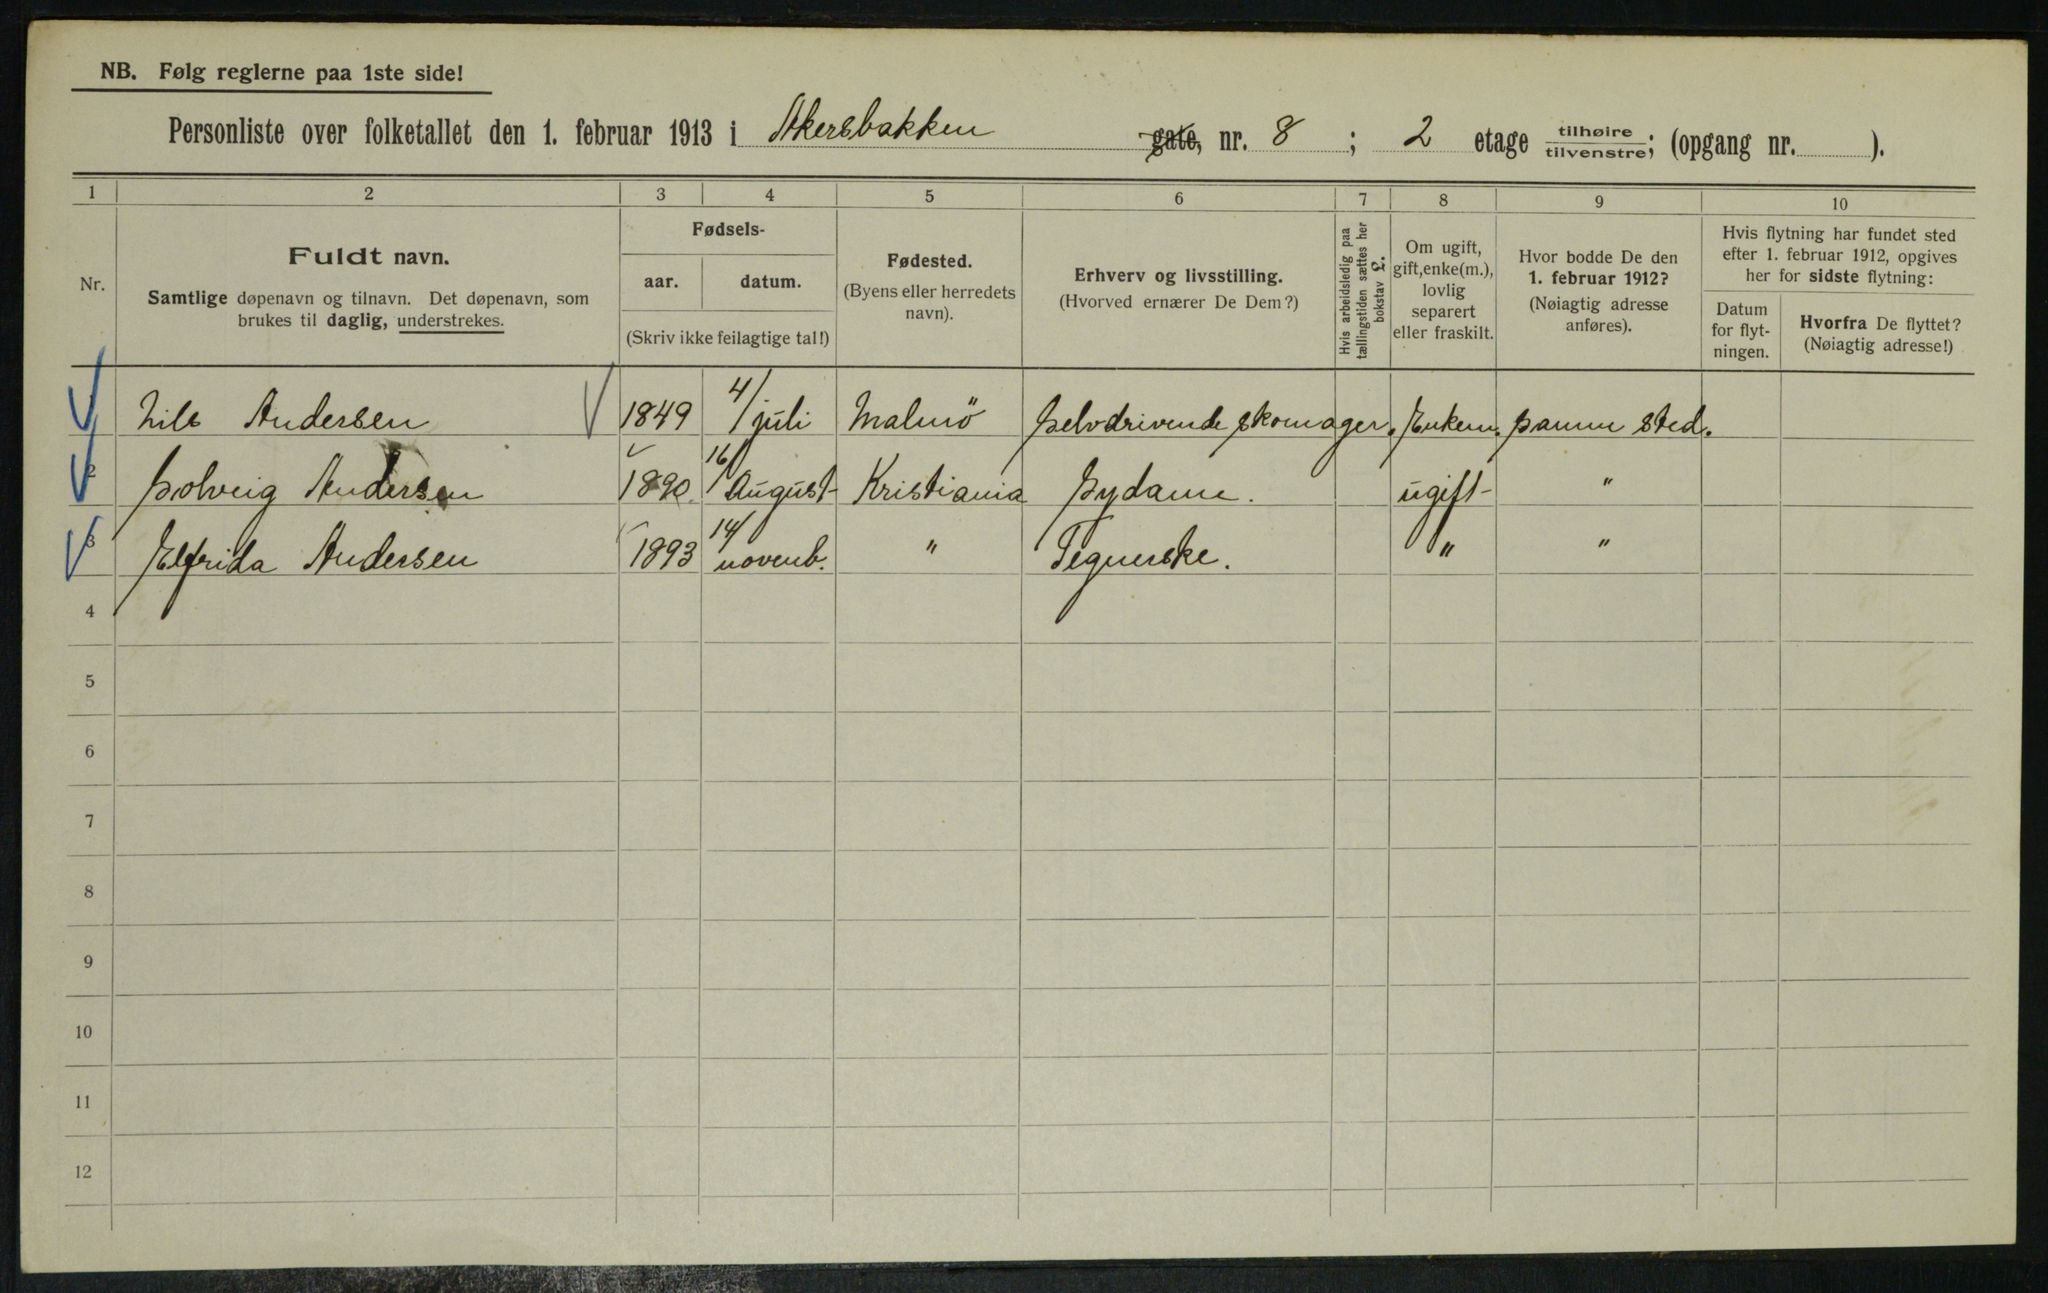 NB. Følg reglerne paa 1ste side!
Personliste over folketallet den 1. februar 1913 i Akersbakken gate, nr. 8 ; 2 etage tilhøire tilvenstre; (opgang nr. ).
1 2 3 4 5 6 7 8 9 10
Nr.
Fuldt navn.
Samtlige døpenavn og tilnavn. Det døpenavn, som
brukes til daglig, understrekes.
Fødsels-
aar. datum.
(Skriv ikke feilagtige tal!)
Fødested.
(Byens eller herredets
navn).
Erhverv og livsstilling.
(Hvorved ernærer De Dem?)
Hvis arbeidsledig paa
tællingstiden sættes her
bokstav L.
Om ugift,
gift, enke(m.),
lovlig
separert
eller fraskilt.
Hvor bodde De den
1. februar 1912?
(Nøiagtig adresse
anføres).
Hvis flytning har fundet sted
efter 1. februar 1912, opgives
her for sidste flytning:
Datum
for flyt-
ningen.
Hvorfra De flyttet?
(Nøiagtig adresse!)
Nils Andersen 1849 4/juli Malmö Selvdrivende Skomager. Enkem. Samme sted.
2 Solveig Andersen 1890 16/August Kristiania Sydame. ugift "
3 Elfrida Andersen 1893 14/novemb. " Tegnerske. " "
4
5
6
7
8
9
10
11
12